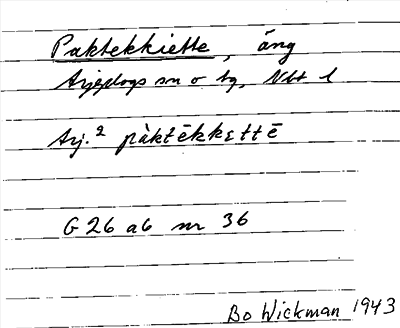 Paktekkiette, äng
Arjeplogs sn o tg, Vbt l
Arj.² pàktēkkεttē
G 26 a6 nr 36
Bo Wickman 1943